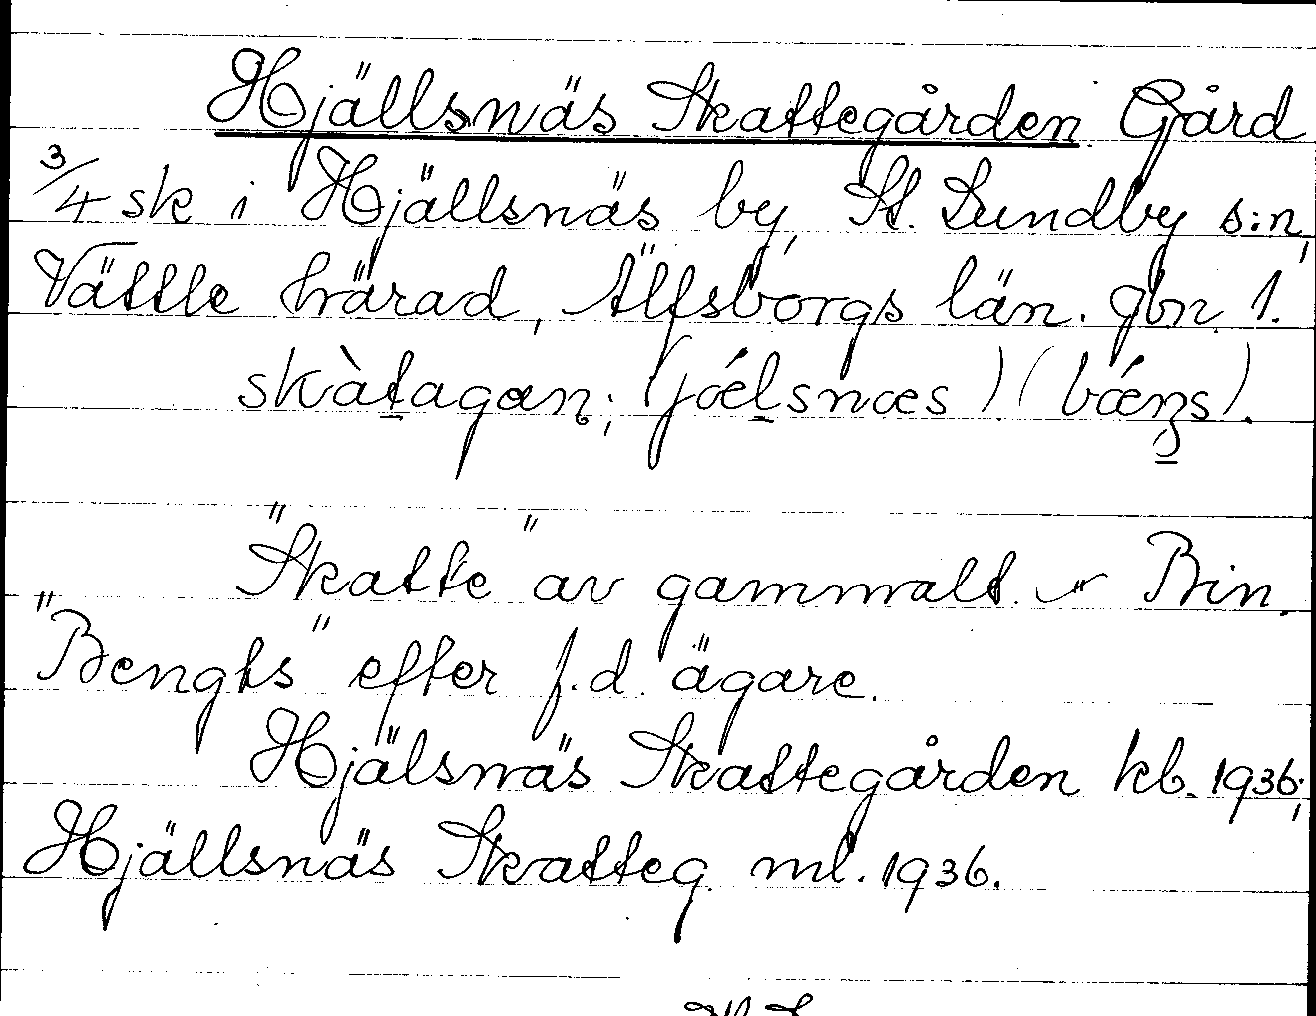 Hjällsnäs Skattegården Gård
3/4 sk i Hjällsnäs by, St. Lundby s:n,
Vättle härad, Älfsborgs län. gbn. 1.
skàtagaṇ; (jǽlsnæs) (bǽŋs).
"Skatte" av gammalt. ~ Bin.
"Bengts" efter f.d. ägare.
Hjälsnäs Skattegården kb. 1936;
Hjällsnäs Skatteg. ml. 1936.